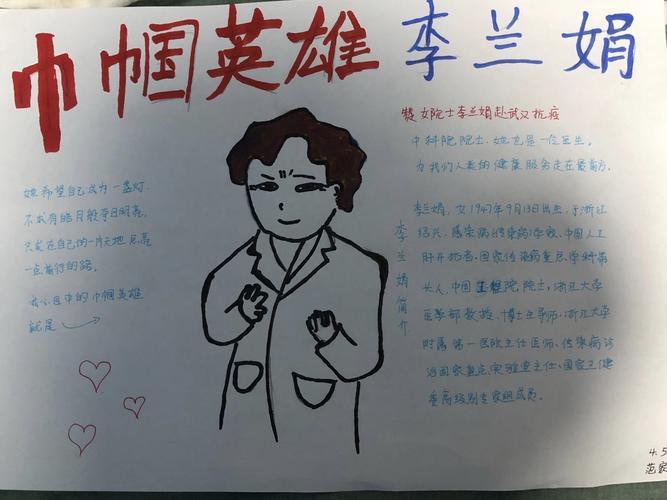 巾帼英雄李兰娟
她希望自己成为一盏灯.
不求有皓月般夺目明亮,
只求在自己的一片天地点亮
一点前行的路。
我心目中的巾帼英雄
就是
女院士李兰娟赴武汉抗疫
中科院院士,她也是一位医生。
为我们人类的健康服务走在最前方.
李兰娟简介
李兰娟,女1947年9月13日出生,于浙江
绍兴,感染病(传染病)学家,中国人工
肝开拓者,国家传染病重点学科带
头人,中国工程院院士,浙江大学
医学部教授、博士生导师,浙江大学
附属第一医院主任医师、传染病诊
治国家重点实验室主任、国家卫健
委高级别专家组成员。
4.5